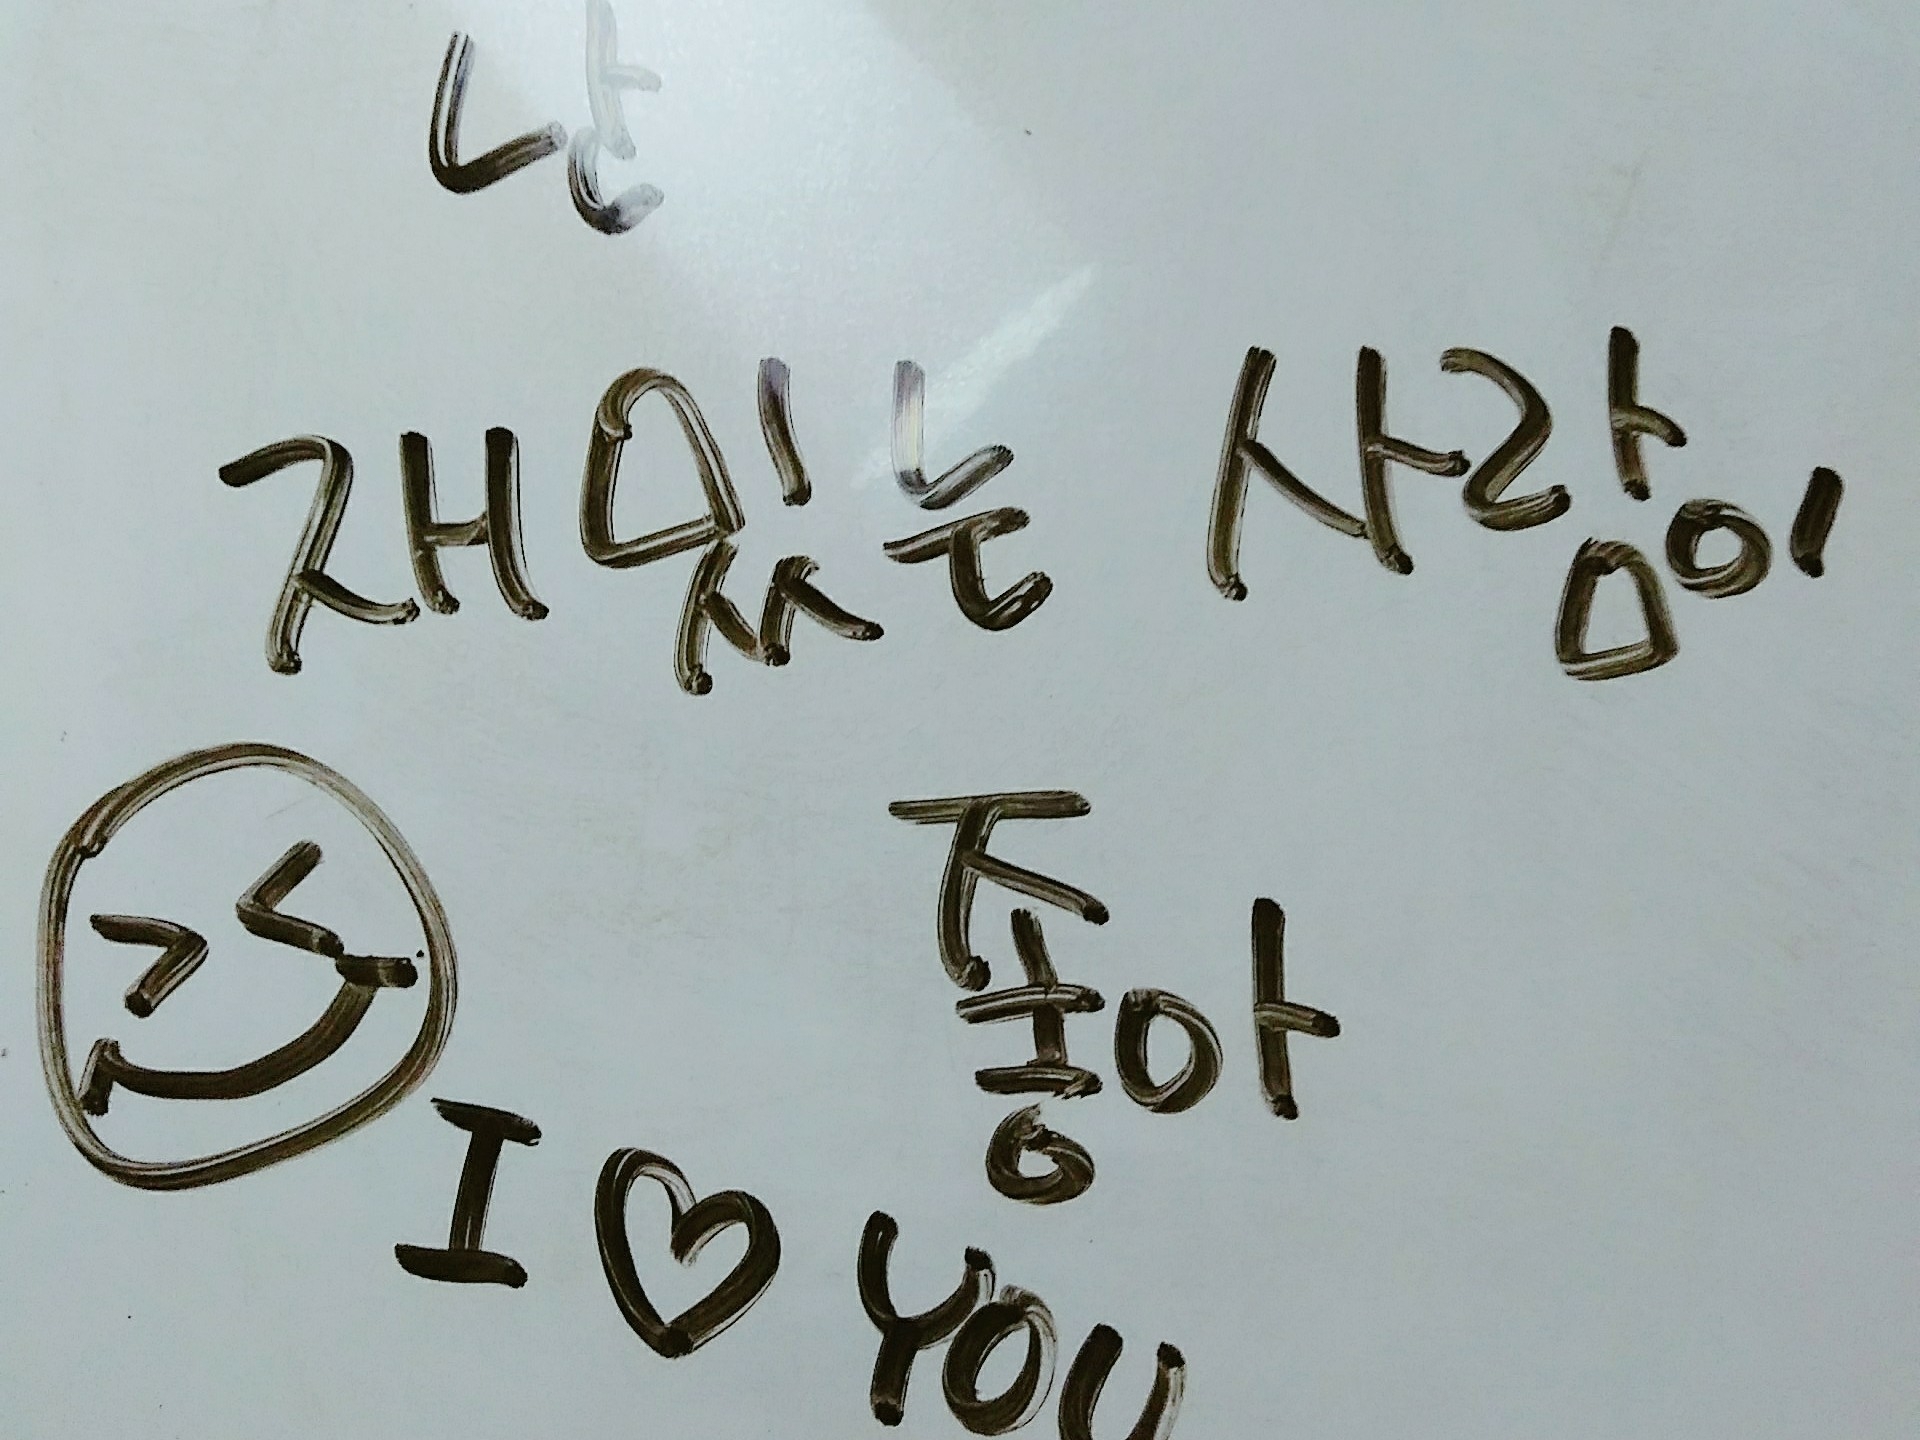 난
재있는 사람이
좋아
I ♡ YOU